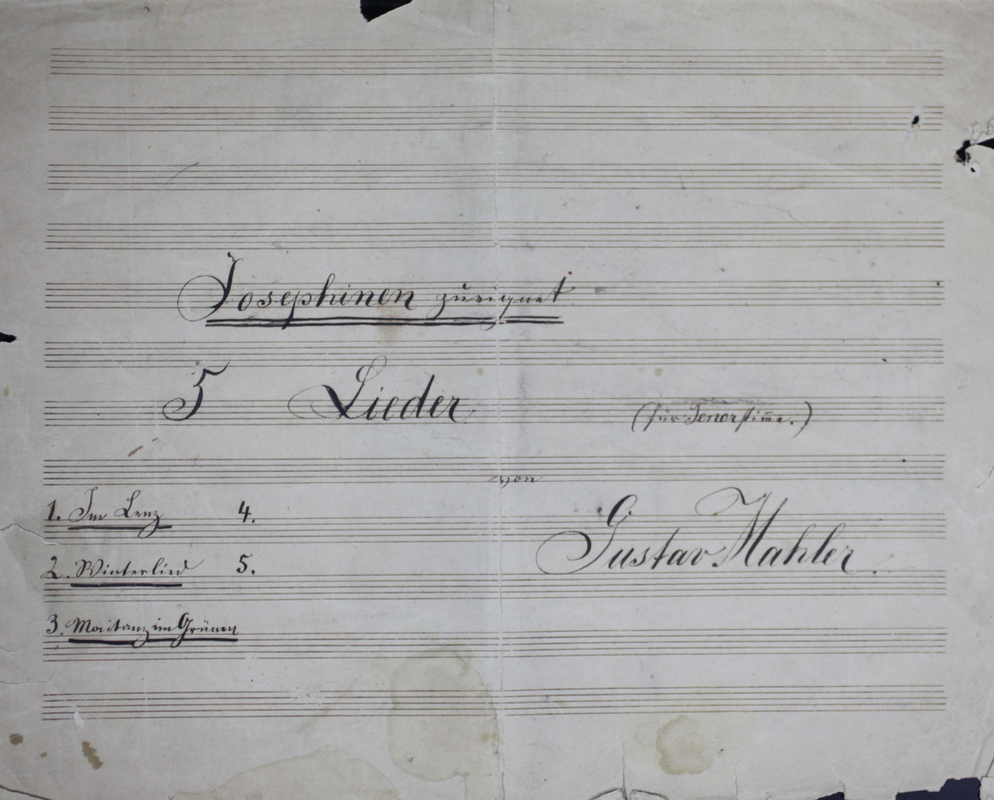 Josephinen zueignet
5 Lieder (für Tenorstimme.)
von
1. Im Lenz 4.
Gustav Mahler.
2. Winterlied 5.
3. Maitanz im Grünen